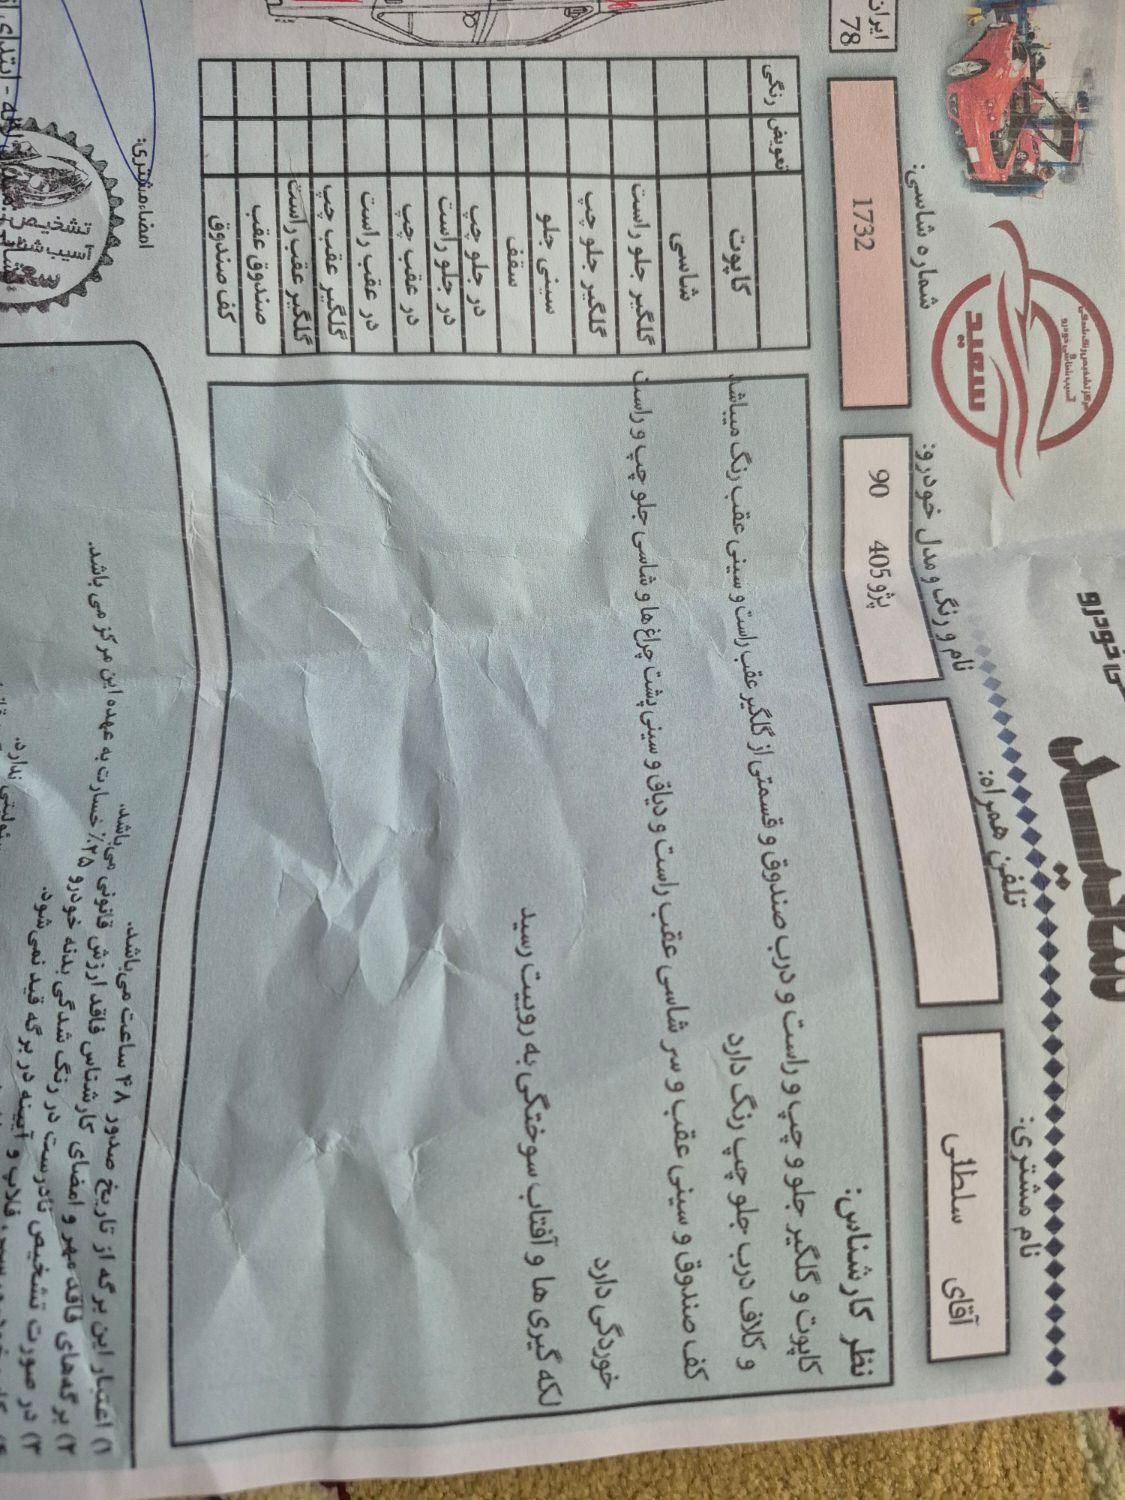 سعید
مرکز تشخیص رنگ شدگی
و
آسیب شناسی خودرو
خودرو
نام مشتری:
آقای سلطانی
تلفن همراه:
نام و رنگ و مدل خودرو:
پژو 405 90
شماره شاسی:
1732
ایران
78
نظر کارشناس:
کاپوت و گلگیر جلو و چپ و راست و درب صندوق و قسمتی از گلگیر عقب راست و سینی عقب رنگ میباشد
و کلاف درب جلو چپ رنگ دارد
کف صندوق و سینی عقب و سر شاسی عقب راست و دیاق و سینی پشت چراغ ها و شاسی جلو چپ و راست
خوردگی دارد
لکه گیری ها و آفتاب سوختگی به روییت رسید
تعویض رنگی
کاپوت
شاسی
گلگیر جلو راست
گلگیر جلو چپ
سینی جلو
سقف
در جلو چپ
در جلو راست
در عقب چپ
در عقب راست
گلگیر عقب چپ
گلگیر عقب راست
صندوق عقب
کف صندوق
امضاء مشتری:
۱) اعتبار این برگه از تاریخ صدور ۴۸ ساعت می‌باشد.
۲) برگه‌های فاقد مهر و امضای کارشناس فاقد ارزش قانونی می‌باشد.
۳) در صورت تشخیص نادرست در رنگ شدگی بدنه خودرو ۲۵٪ خسارت به عهده این مرکز می باشد.
قلاب و آیینه در برگه قید نمی‌شود.